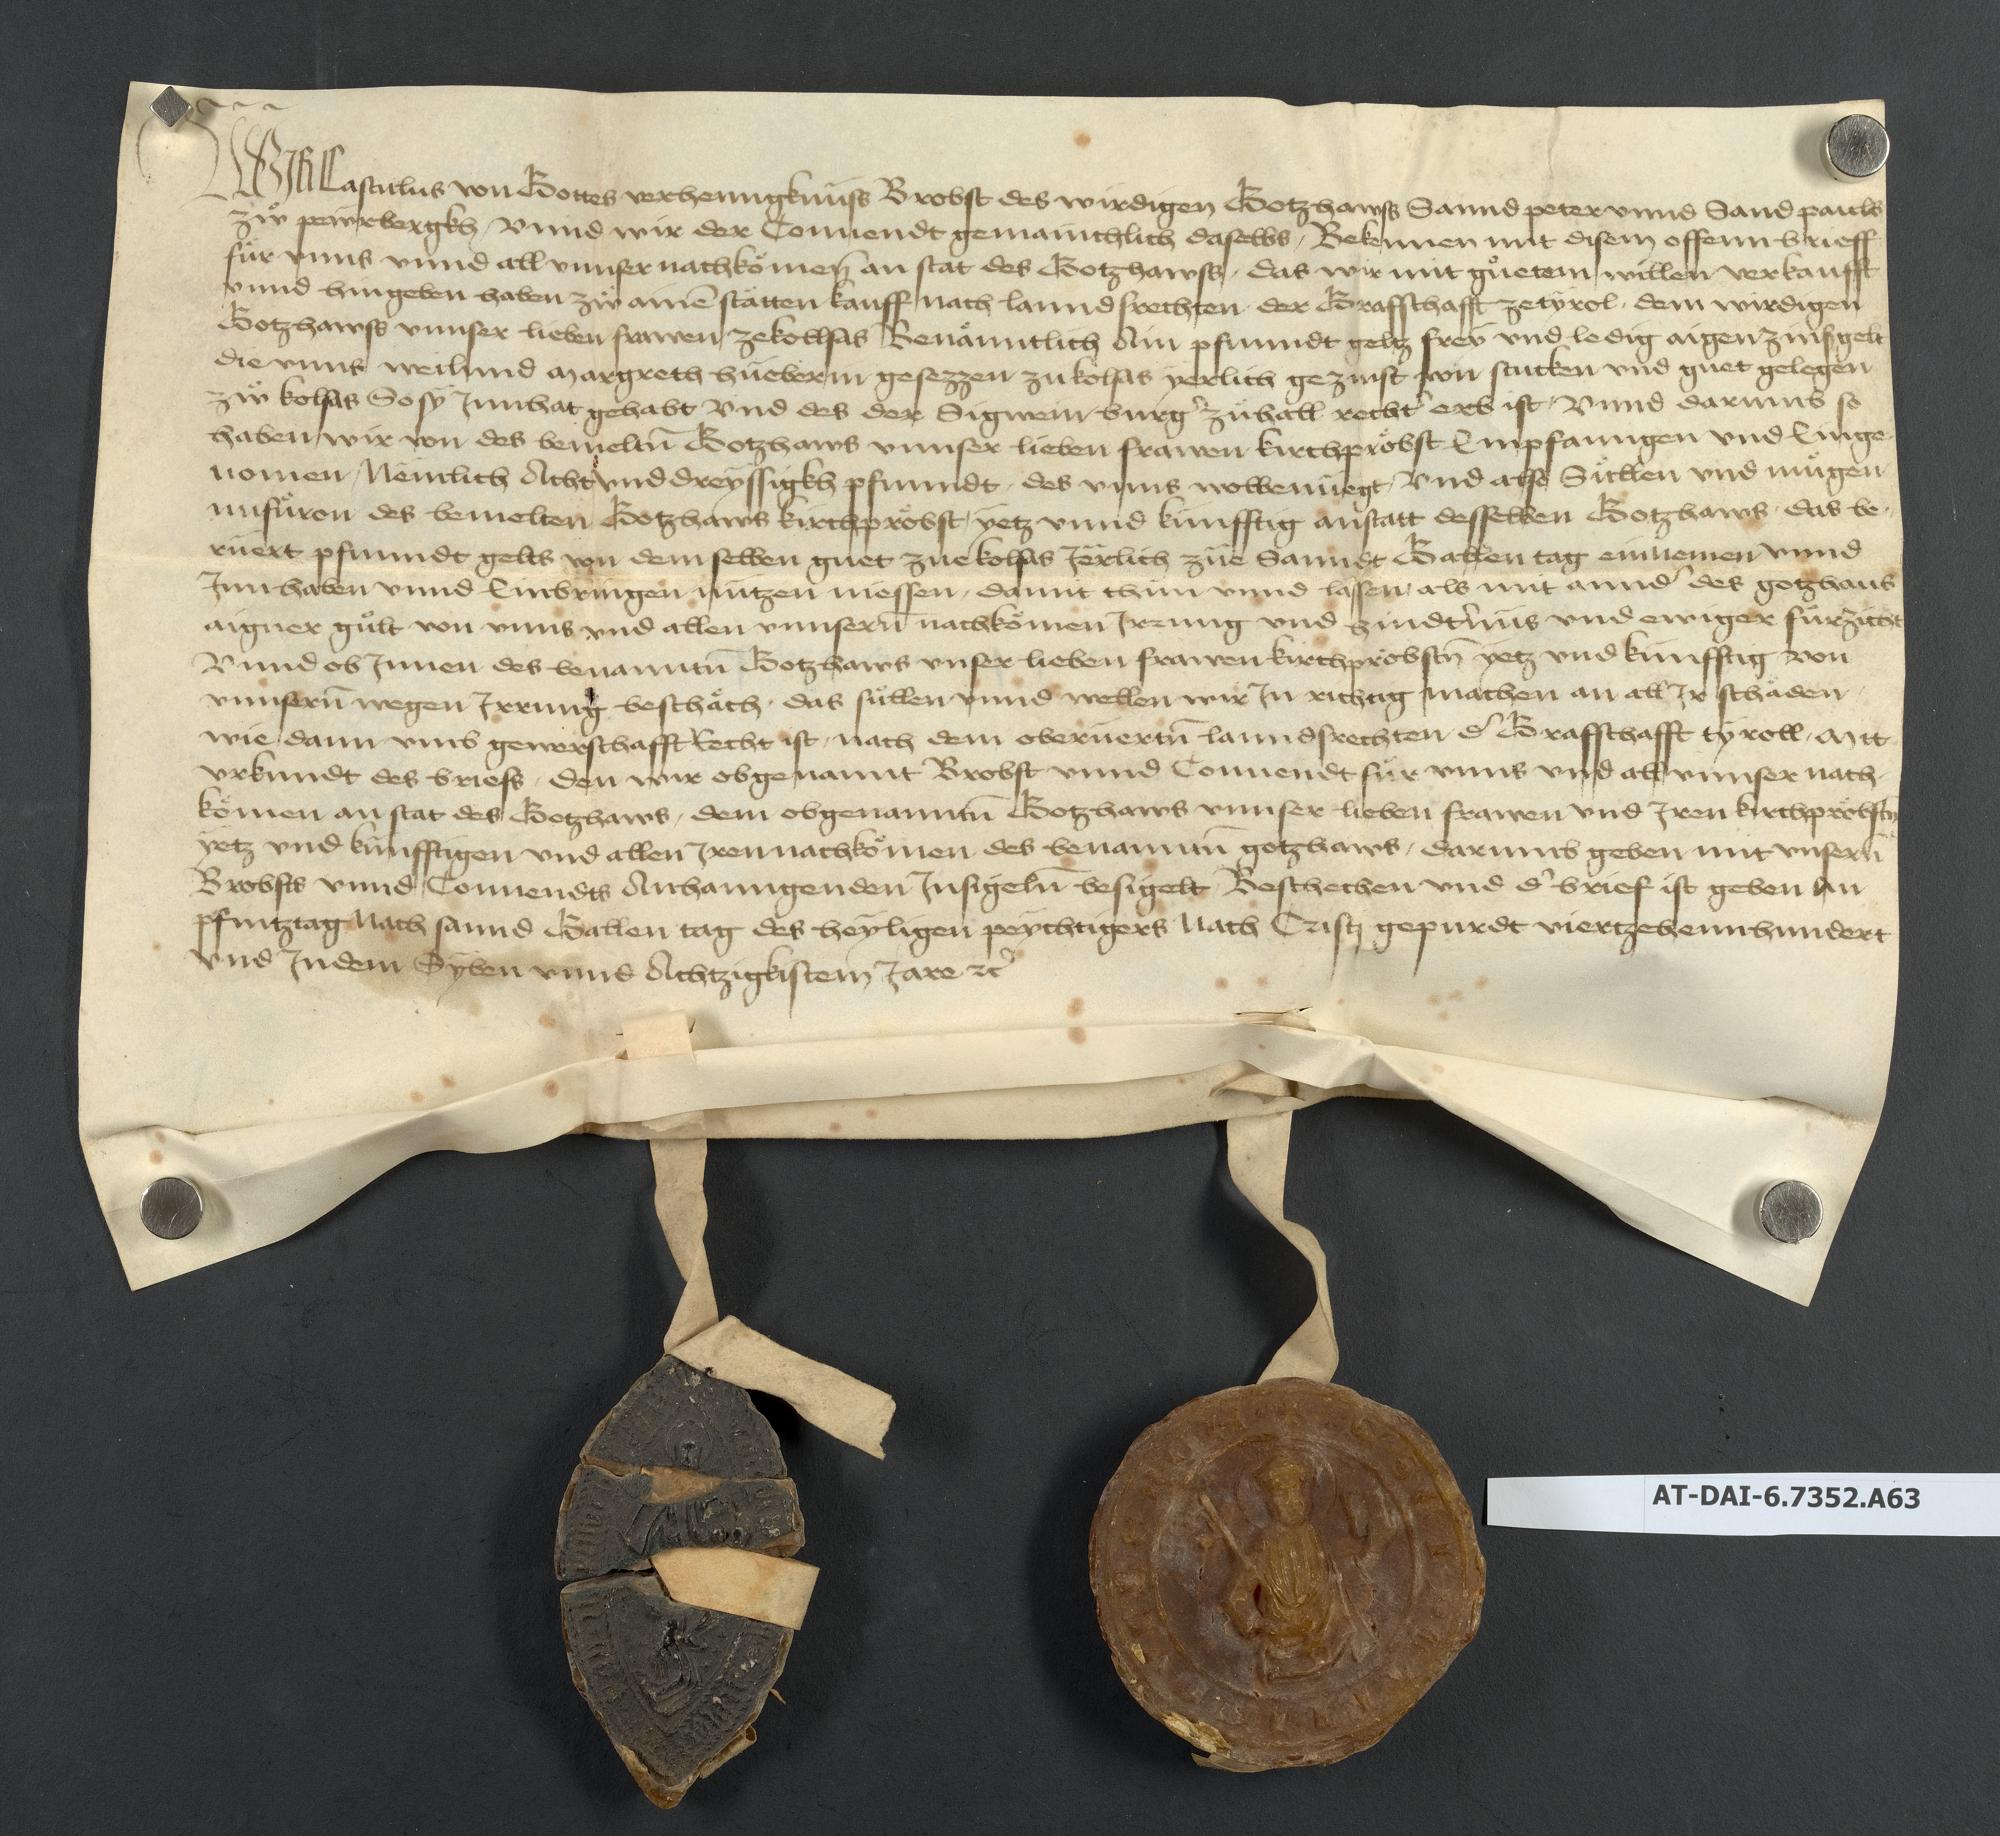 WIR Castulus von Gottes verhenngknüss Brobst des wirdigen Gotzhawss Sannd peter vnnd Sand pauls
zŵ pewrbergkh, Vnnd wir der Conuendt gemainchlich daselbs, Bekennen mit disem offenn brieff
für vnns vnnd all vnnser nachkömen an stat des Gotzhawss, das wir mit gůetem willen verkaufft
vnnd hingeben haben zŵ ainē stätten kauff nach lanndsrechten der Grafschafft zetyrol, dem wirdigen
Gotzhawss vnnser lieben frawen zekollsas Benänntlich Ain pfunndt geltz frey vnd ledig aigen zinsgelt
die vnns weilund Margreth hüeberin gesezzen zu kolsas yerlich gezinst von stucken vnd guet gelegen
zŵ kolsas So sy Innhat gehabt Vnd des der Sigwein burgʼ zů hall rechtʼ erb ist, Vnnd darumb so
haben wir von des bemeltn̄ Gotzhaws vnnser lieben frawen kirchpröbst Empfanngen vnd Einge-
nomen, Nemlich Acht vnd dreyssigkh pfunndt, des vnns wolbenüegt, Vnd also Süllen vnd mügen
nu füron des bemelten Gotzhaws kirchpröbst, yetz vnnd künfftig anstatt desselben Gotzhaws, das be-
rüert pfunndt gelts von demselben guet zue kolsas Järlich züe Sanndt Gallen tag einnemen vnnd
Innhaben vnnd Einbringen nützen niessen, damit thun vnnd lassen, als mit anndʼ des gotzhaus
aigner gůlt von vnns vnd allen vnnsern̄ nachkömen Irrung vnd hindtʼnüs vnd ewiger fürzicht
Vnnd ob Innen des benanntn̄ Gotzhaws vnser lieben frawen kirchpröbstn̄ yetz vnd künfftig von
vnnsern̄ wegen Irrung beschäch, das süllen vnnd wellen wir In richtig machen an all Ir schäden,
wie dann vmb gewerschafft Recht ist, nach dem oberüertn̄ lanndsrechten dʼ Grafschafft tyroll, Mit
vrkundt des briefs, den wir obgenannt Brobst vnnd Conuendt für vnns vnd all vnnser nach-
kömen an stat des Gotzhaws, dem obgenanntn̄ Gotzhaws vnnser lieben frawen vnd Iren kirchpröbstn̄
yetz vnd künfftigen vnd allen Iren nachkömen des benanntn̄ gotzhaws, darumb geben mit vnsern̄
Brobsts vnnd Conuendts Anhanngenden Insigeln̄ besigelt Beschechen vnd dʼ brief ist geben An
pfintztag Nach sannd Gallen tag des heyligen peychtigers Nach Cristj gepurdt viertzehennhundert
vnd Indem Syben vnnd Achtzigkistem Jare ꝛcʼ
AT-DAI-6.7352.A63